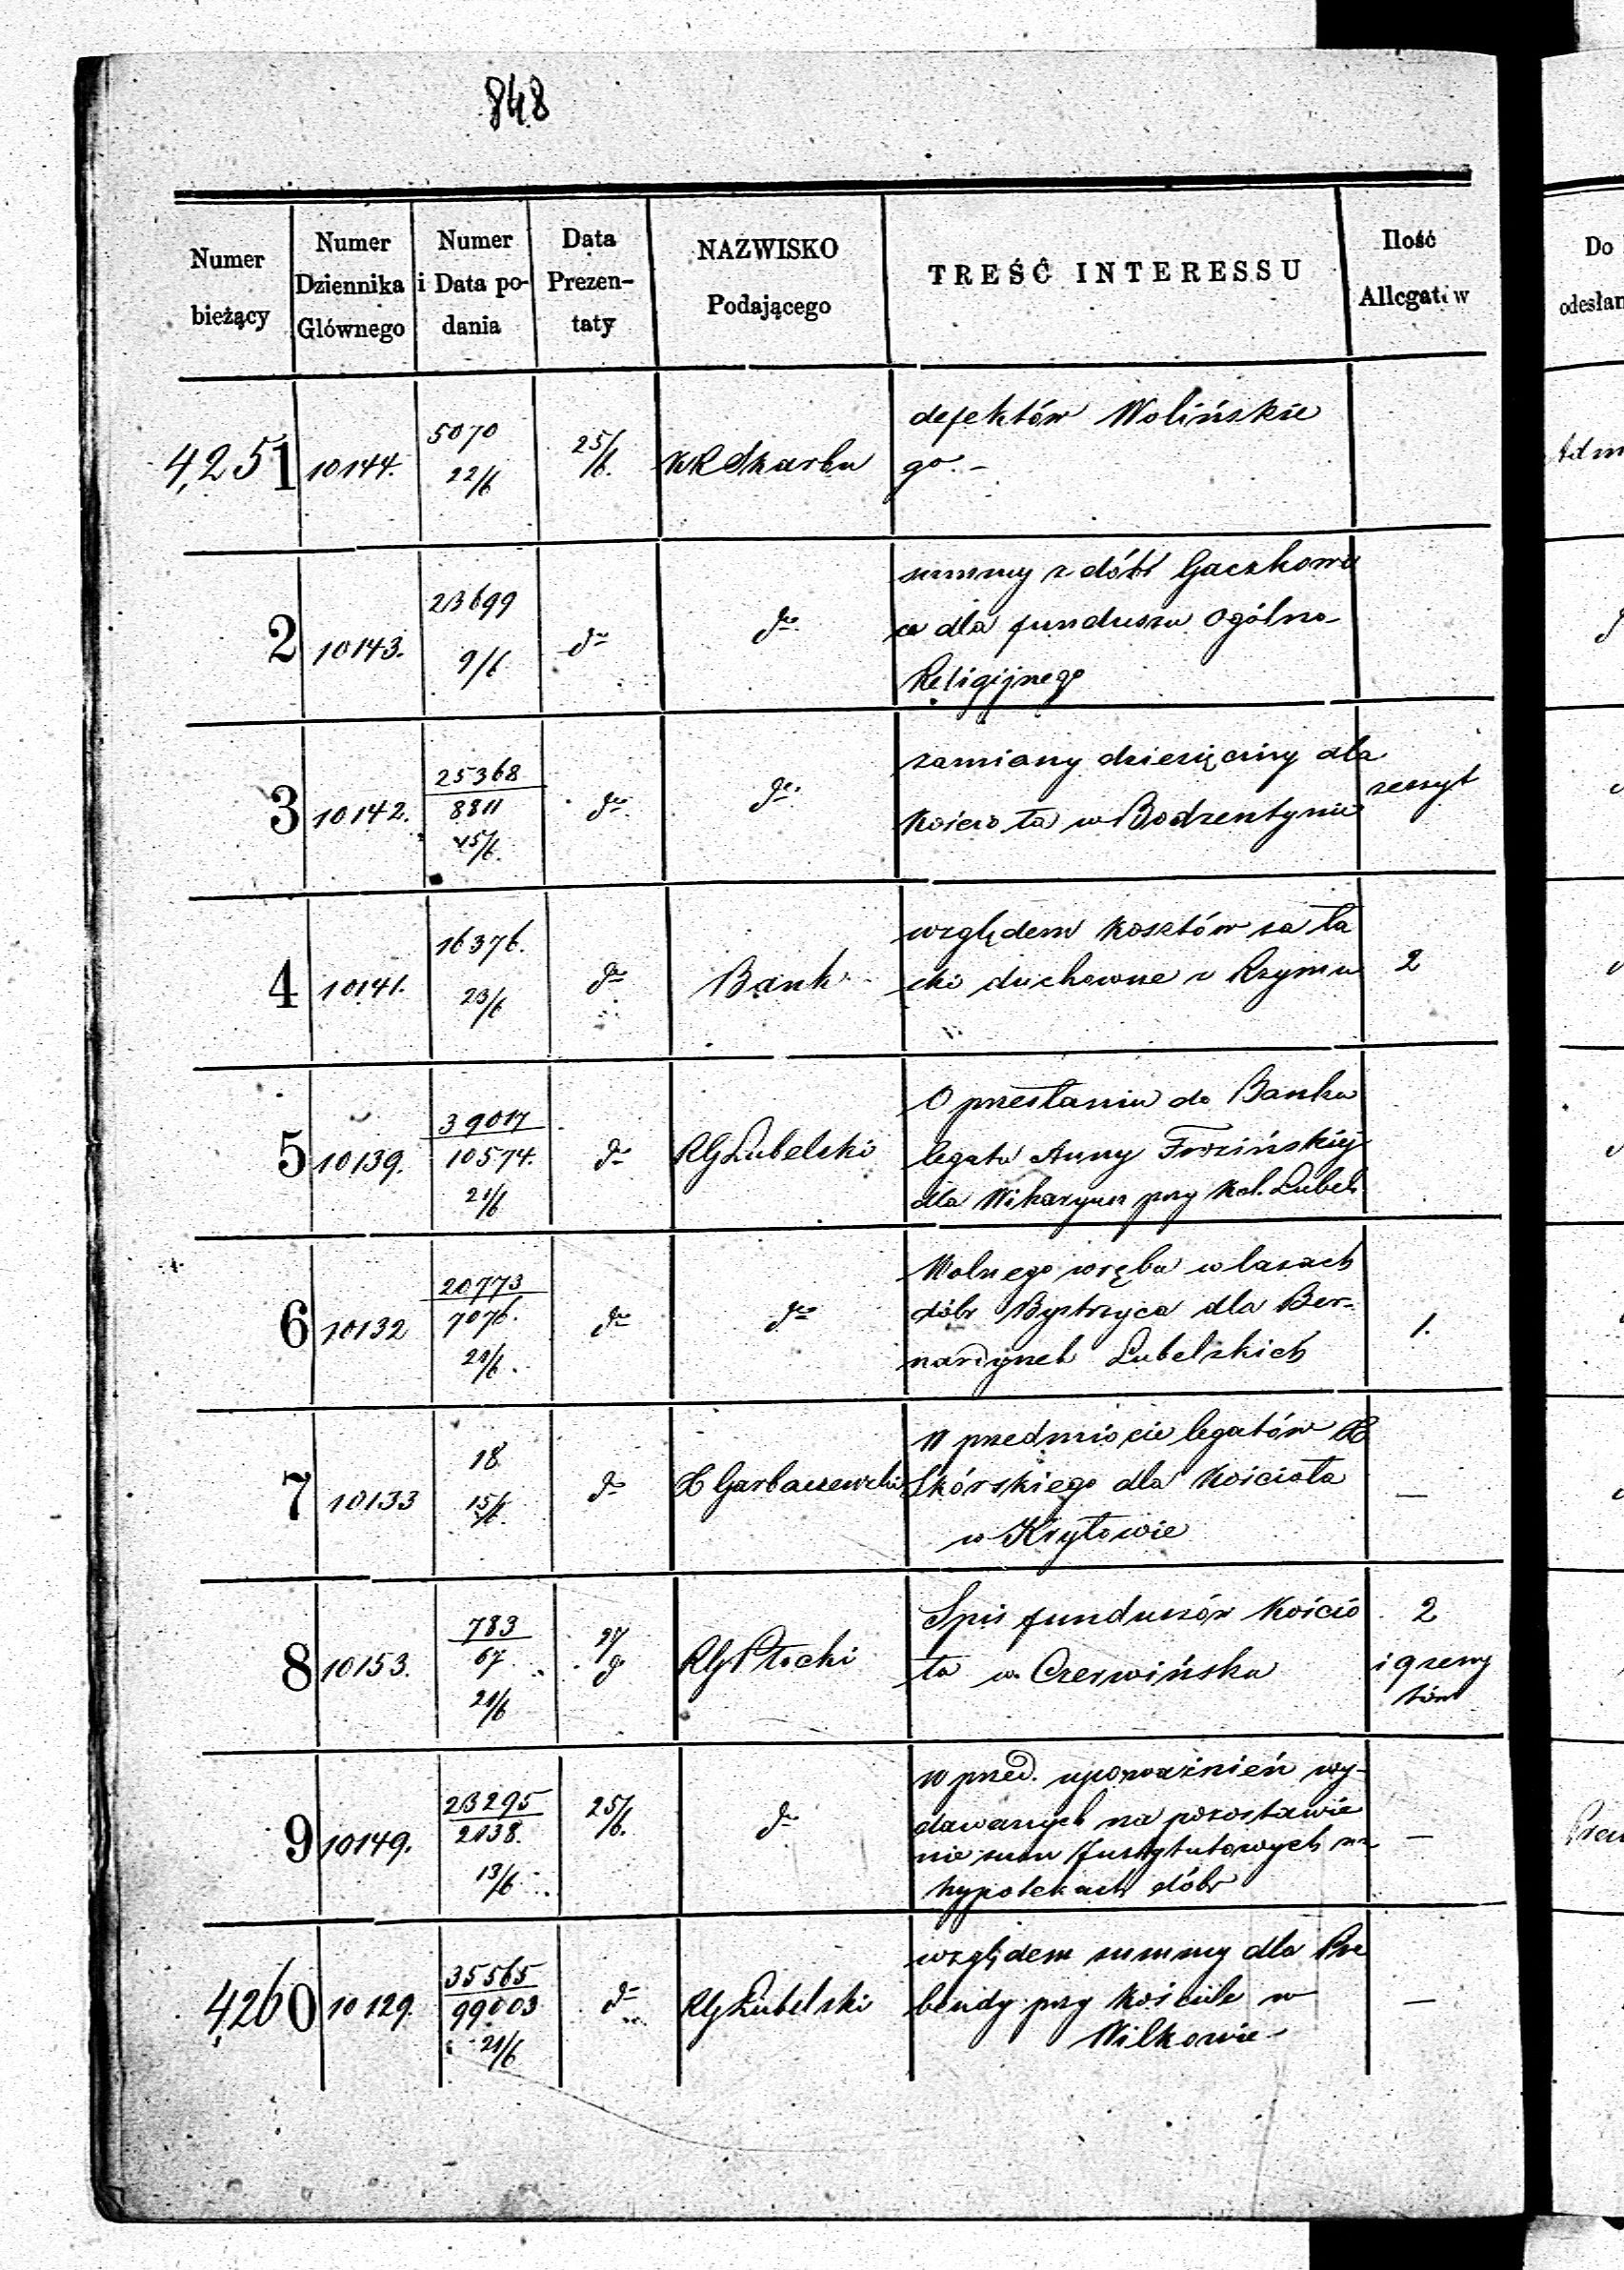 848
Numer bieżący
Numer Dziennika Głównego
Numer i Data podania
Data Prezentaty
NAZWISKO Podającego
TREŚĆ INTERESSU
Ilość Allegatów
Do
odesłan
4,251 10144. 5070 22/6 25/6. KR Skarbu
defektów Wolińskie
go. –
2 10143. 23699 9/6 do do
summy z dóbr Gaczkowi
ce dla funduszu Ogólno-
Religijnego
3 10142. 25368 8811 15/6. do do
zamiany dziesięciny dla
Kościoła w Bodzentynie
zeszyt
4 10141. 16376. 23/6 do Bank
względem kosztów za ła
ski duchowne z Rzymu
2
5 10139. 39017 10574. 21/6 do RG Lubelski
O przesłaniu do Banku
legatu Anny
dla Wikaryusz przy Kol. Lubel.
6 10132 20773 7076. 21/6. do do
Wolnego wrębu w lasach
dóbr Bystrzyca dla Ber-
nardynek Lubelskich
1.
7 10133 18 15/6. do X Garbaszewski
W przedmiocie legatów X
Skórskiego dla Kościoła
w Kryłowie
—
8 10153. 783 67 21/6 27 do RG Płocki
Spis funduszów Kościo
ła w Czerwińsku
2
i 9 zeszy
tów
9 10149. 23295 2138. 13/6 25/6. do
w przed. upoważnień wy-
dawanych na pozostawie
nie sum Instytutowych na
hypotekach dóbr
—
4,260 10129. 35565 99003 21/6 do RG Lubelski
względem summy dla Pre
bendy przy Kościele w
Wilkowie –
—